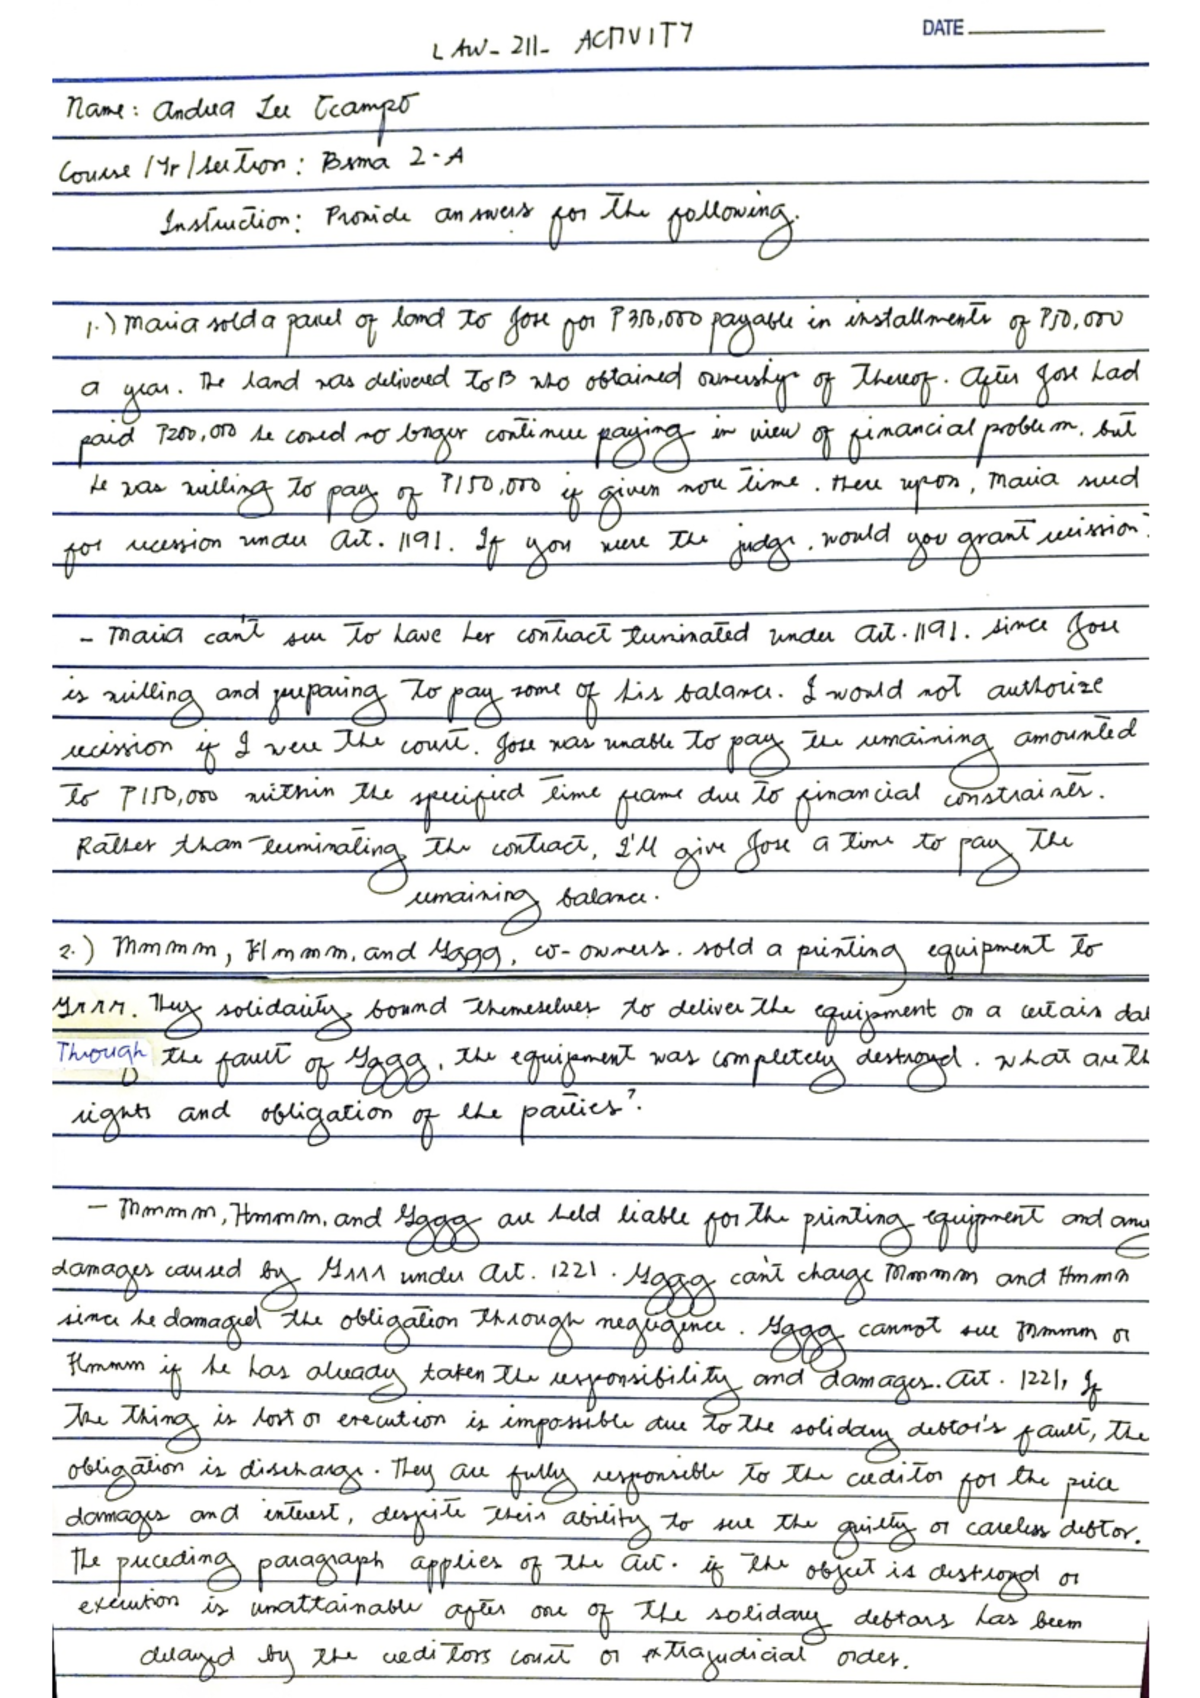 LAW-211- ACTIVITY
DATE
Name: Andrea Lee Ocampo
Course/Yr/Section: Bsma 2-A
Instruction: Provide answers for the following.
1.) Maria sold a parcel of land to Jose for ₱350,000 payable in installments of ₱50,000
a year. The land was delivered to B who obtained ownership of thereof. After Jose had
paid ₱200,000 he coued no longer continue paying in view of financial problem. but
he was willing to pay of ₱150,000 if given more time. Here upon, Maria sued
for recession under Art. 1191. If you were the judge, would you grant recission?
- Maria can't sue to have her contract terminated under Art. 1191. since Jose
is willing and preparing to pay some of his balance. I would not authorize
recission if I were the court. Jose was unable to pay the remaining amounted
to ₱150,000 within the specified time frame due to financial constraints.
Rather than terminating the contract, I'll give Jose a time to pay the
remaining balance.
2.) Mmmm, Hmmm, and Gggg, co-owners. sold a printing equipment to
They solidarity bound themeselves to deliver the equipment on a certain dat
Through the fault of Gggg, the equipment was completely destroyd. What are th
rights and obligation of the parties?
- Mmmm, Hmmm, and Gggg are held liable for the printing equipment and any
damages caused by under Art. 1221. Gggg can't charge Mmmm and Hmmm
since he damaged the obligation through negligence. Gggg cannot sue Mmmm or
Hmmm if he has already taken the responsibility and damages. Art. 1221, If
the thing is lost or execution is impossible due to the solidary debtor's fault, the
obligation is discharge. They are fully responsible to the creditor for the price
damages and interest, despite their ability to sue the guilty or careless debtor.
The preceding paragraph applies of the Art. if the object is destroyd or
execution is unattainable after one of the solidary debtors has been
delayed by the creditors court or extrajudicial order.